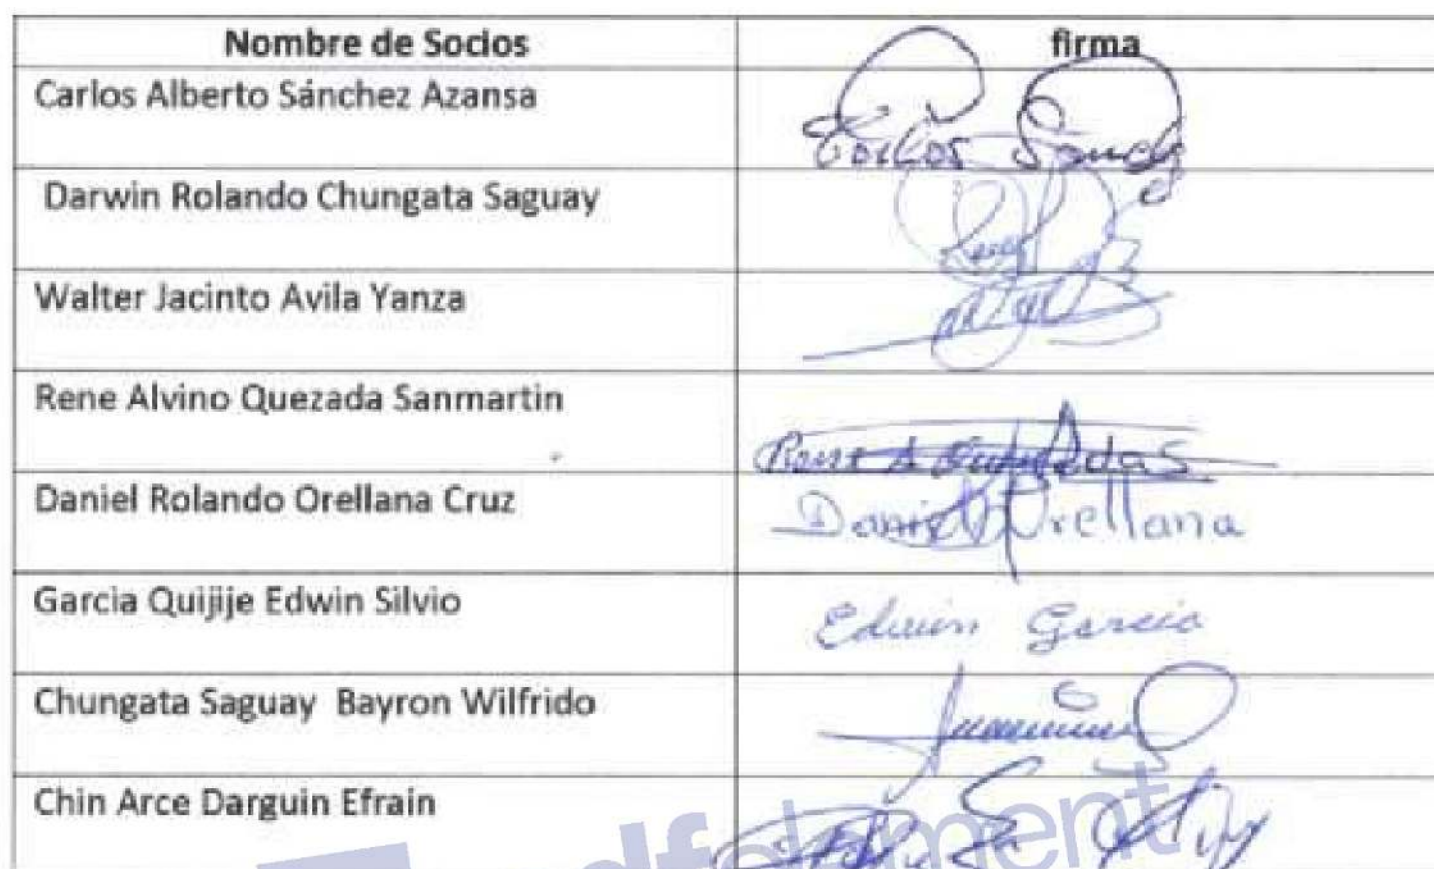 Nombre de Socios firma
Carlos Alberto Sánchez Azansa
Carlos Sanch
Darwin Rolando Chungata Saguay
Walter Jacinto Avila Yanza
Rene Alvino Quezada Sanmartin
Rene A
Daniel Rolando Orellana Cruz
Daniel Orellana
Garcia Quijije Edwin Silvio
Edwin Garcia
Chungata Saguay Bayron Wilfrido
Chin Arce Darguin Efrain